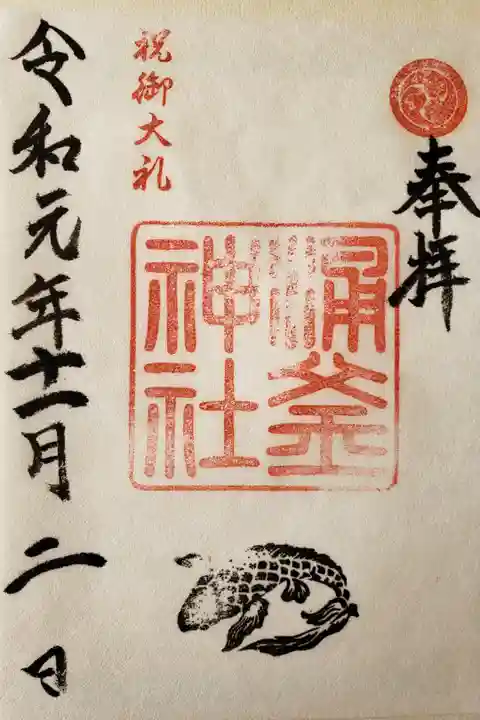 奉拝
湧釜
神社
祝御大礼
令和元年十一月二日